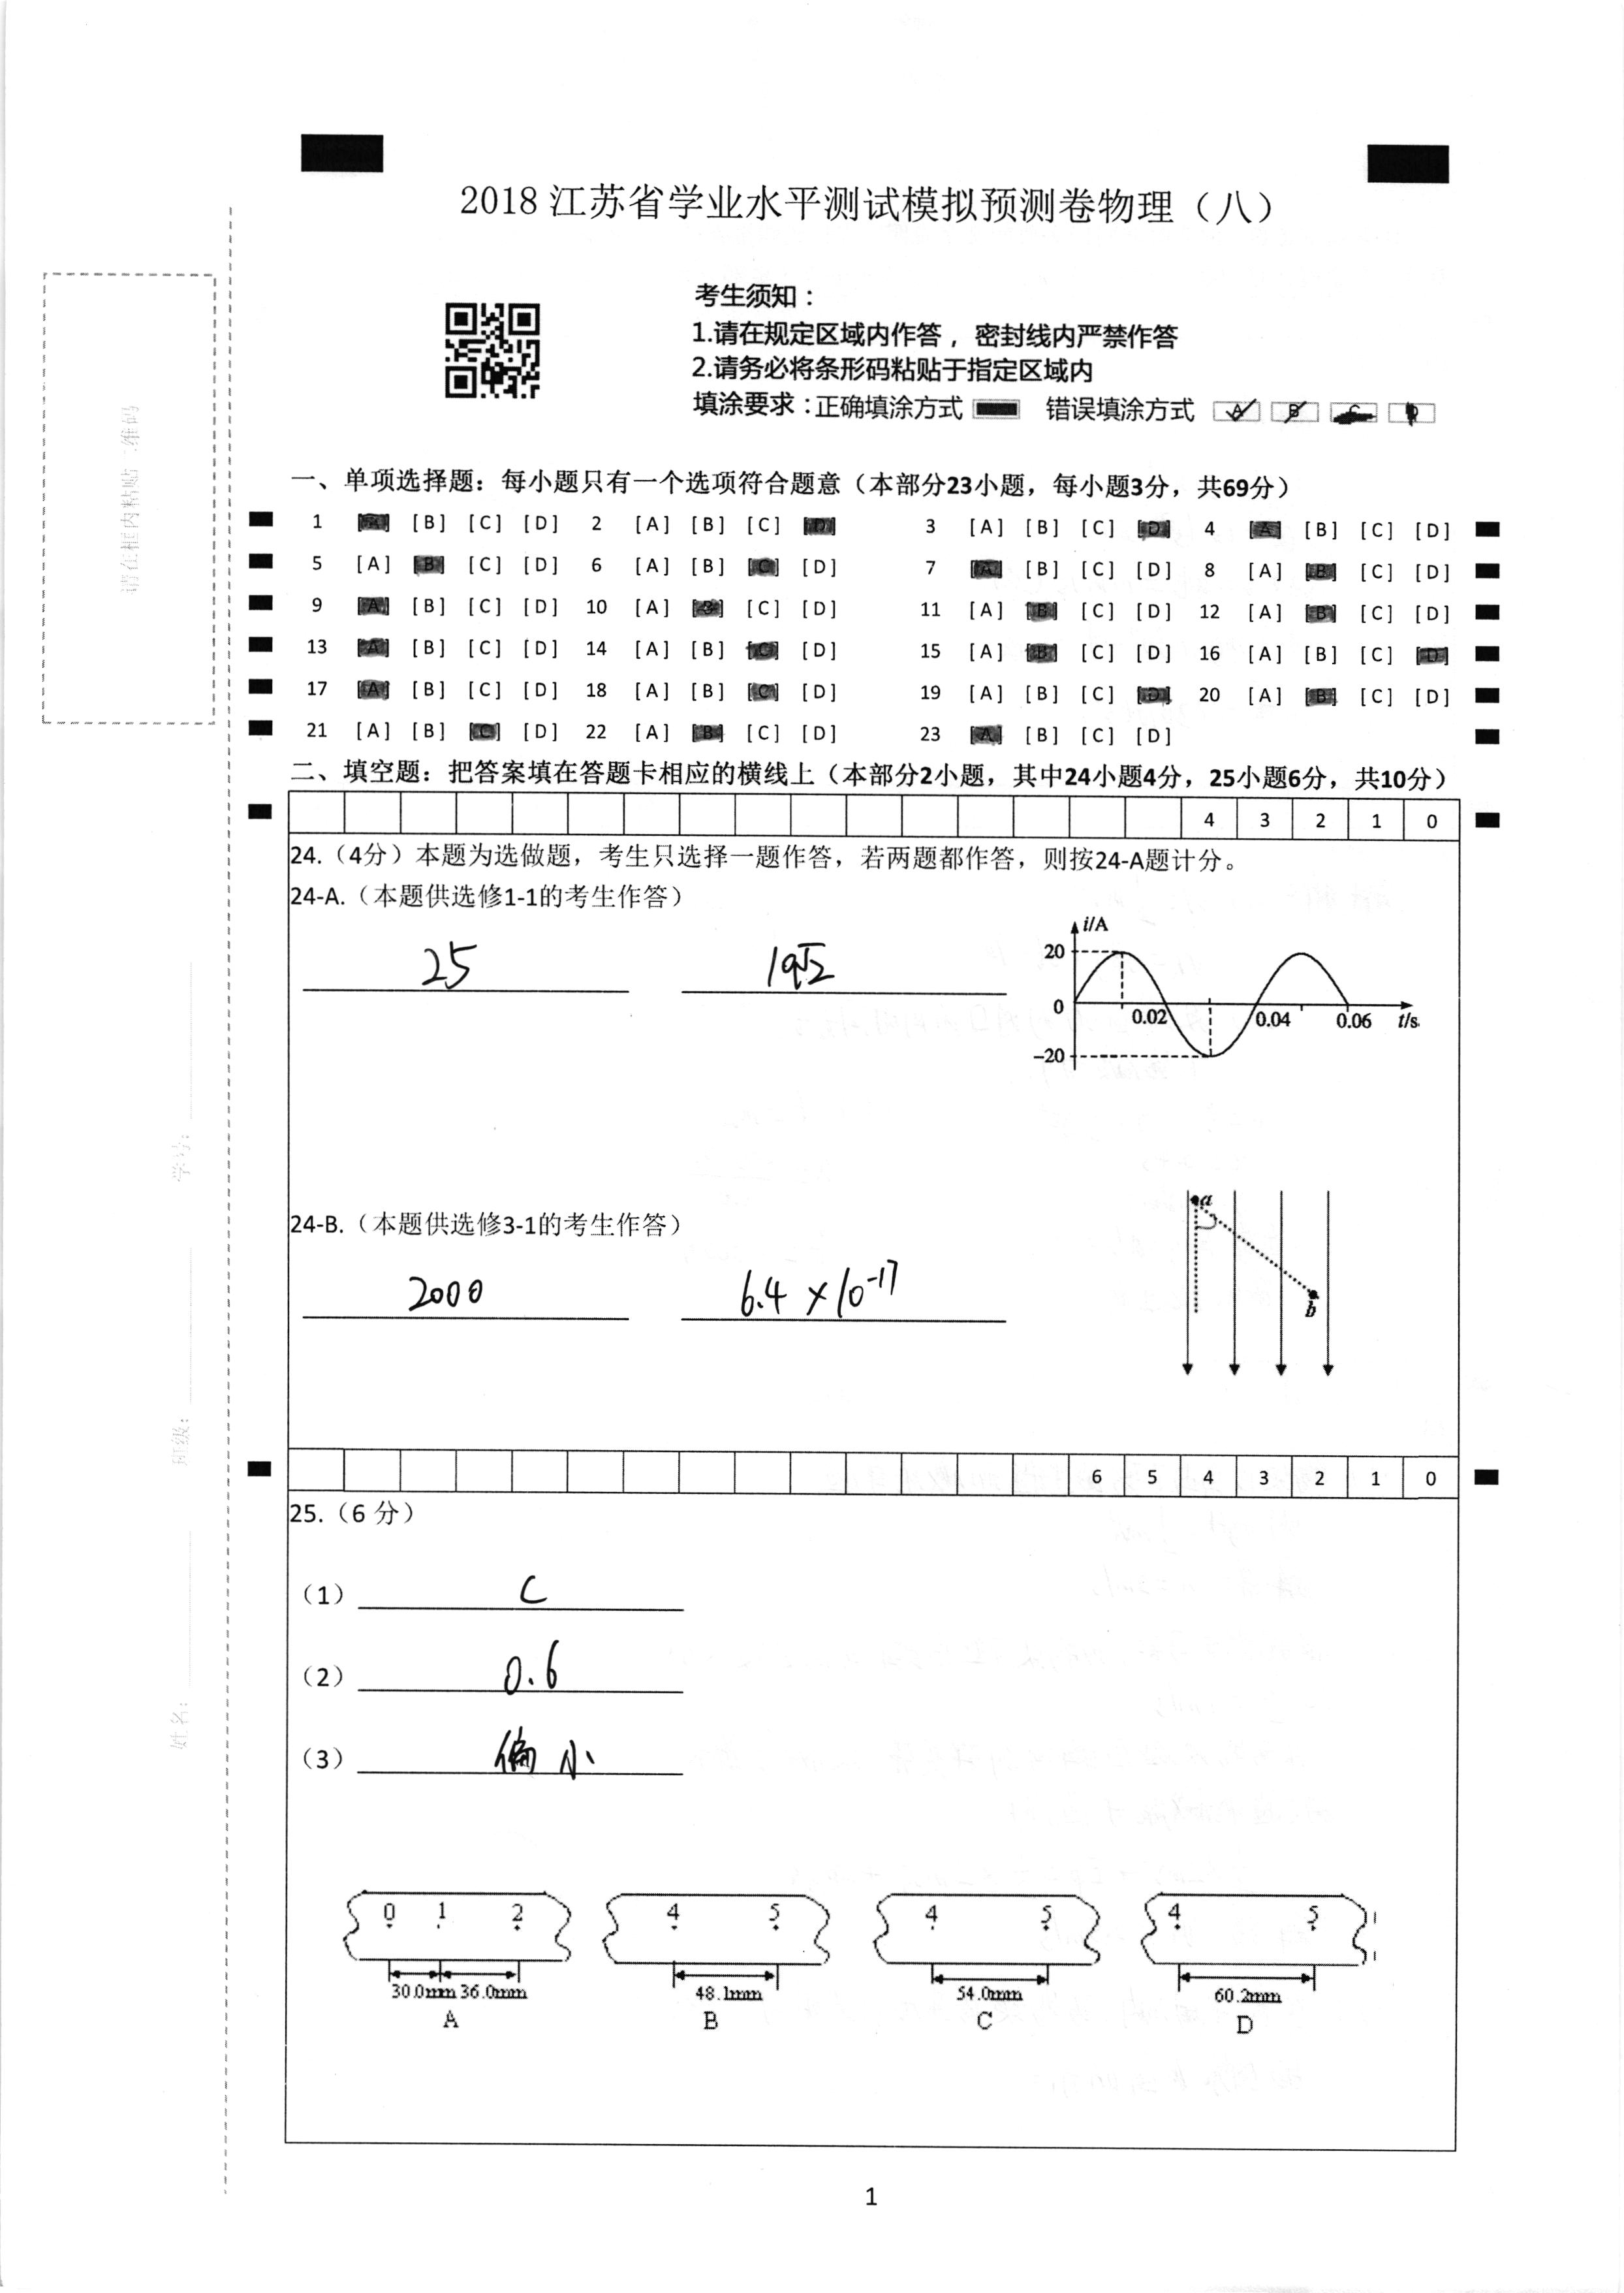 2018江苏省学业水平测试模拟预测卷物理（八）
考生须知：
1.请在规定区域内作答，密封线内严禁作答
2.请务必将条形码粘贴于指定区域内
填涂要求：正确填涂方式 错误填涂方式 A B C D
请在框内粘贴二维码
学号：
班级：
姓名：
一、单项选择题：每小题只有一个选项符合题意（本部分23小题，每小题3分，共69分）
1 [A] [B] [C] [D] 2 [A] [B] [C] [D] 3 [A] [B] [C] [D] 4 [A] [B] [C] [D]
5 [A] [B] [C] [D] 6 [A] [B] [C] [D] 7 [A] [B] [C] [D] 8 [A] [B] [C] [D]
9 [A] [B] [C] [D] 10 [A] [B] [C] [D] 11 [A] [B] [C] [D] 12 [A] [B] [C] [D]
13 [A] [B] [C] [D] 14 [A] [B] [C] [D] 15 [A] [B] [C] [D] 16 [A] [B] [C] [D]
17 [A] [B] [C] [D] 18 [A] [B] [C] [D] 19 [A] [B] [C] [D] 20 [A] [B] [C] [D]
21 [A] [B] [C] [D] 22 [A] [B] [C] [D] 23 [A] [B] [C] [D]
二、填空题：把答案填在答题卡相应的横线上（本部分2小题，其中24小题4分，25小题6分，共10分）
4 3 2 1 0
24.（4分）本题为选做题，考生只选择一题作答，若两题都作答，则按24-A题计分。
24-A.（本题供选修1-1的考生作答）
25 10√2
i/A
20
0 0.02 0.04 0.06 t/s
-20
24-B.（本题供选修3-1的考生作答）
2000 6.4×10⁻¹⁷
a
b
6 5 4 3 2 1 0
25.（6分）
（1） C
（2） 0.6
（3） 偏小
0 1 2 4 5 4 5 4 5
30.0mm 36.0mm 48.1mm 54.0mm 60.2mm
A B C D
1